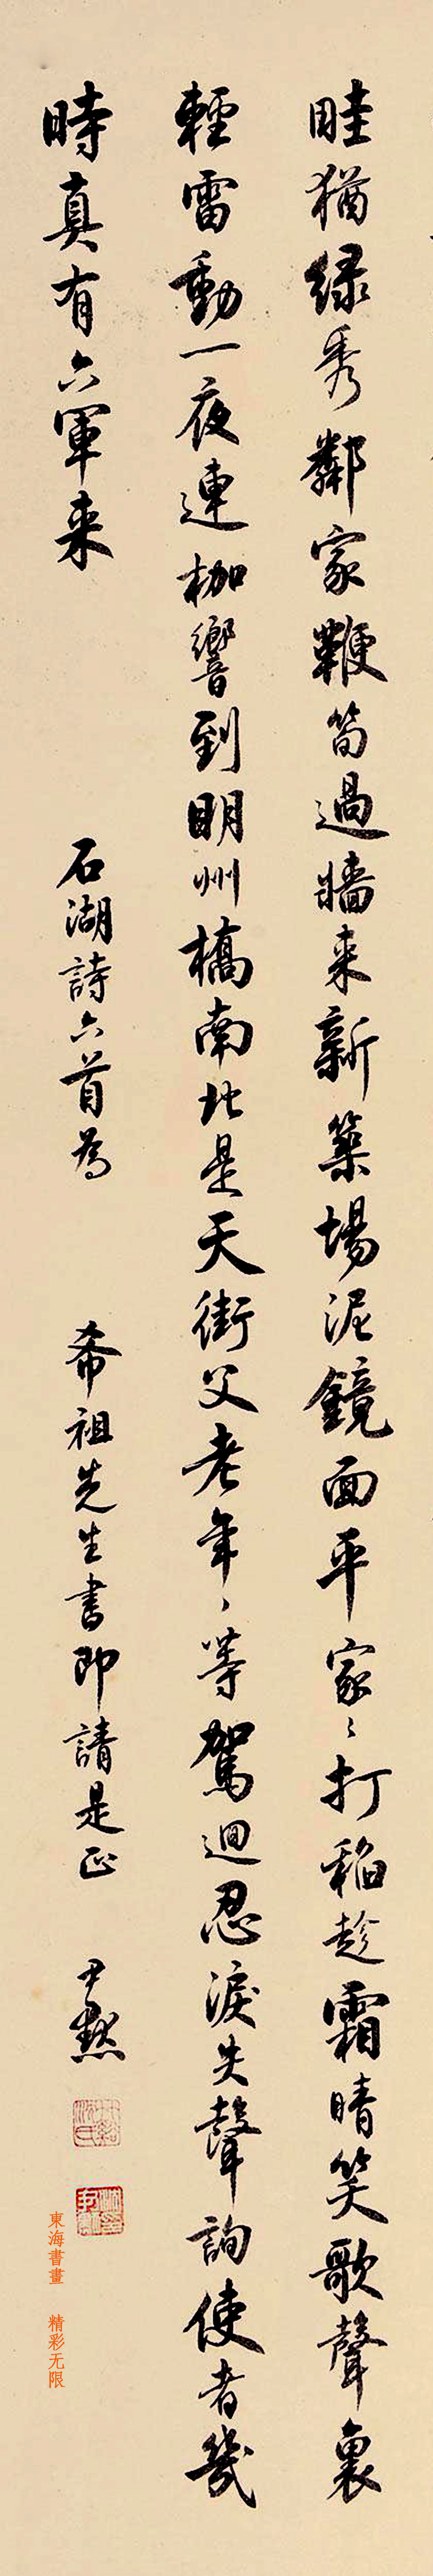 畦猶綠秀鄰家鞭筍過墻来新築場泥鏡面平家〻打稻趁霜晴笑歌聲裏
輕雷動一夜連枷響到明州橋南北是天街父老年〻等駕迴忍淚失聲詢使者幾
時真有六軍来
石湖詩六首為
希祖先生書即請是正
尹默
東海書畫 精彩无限